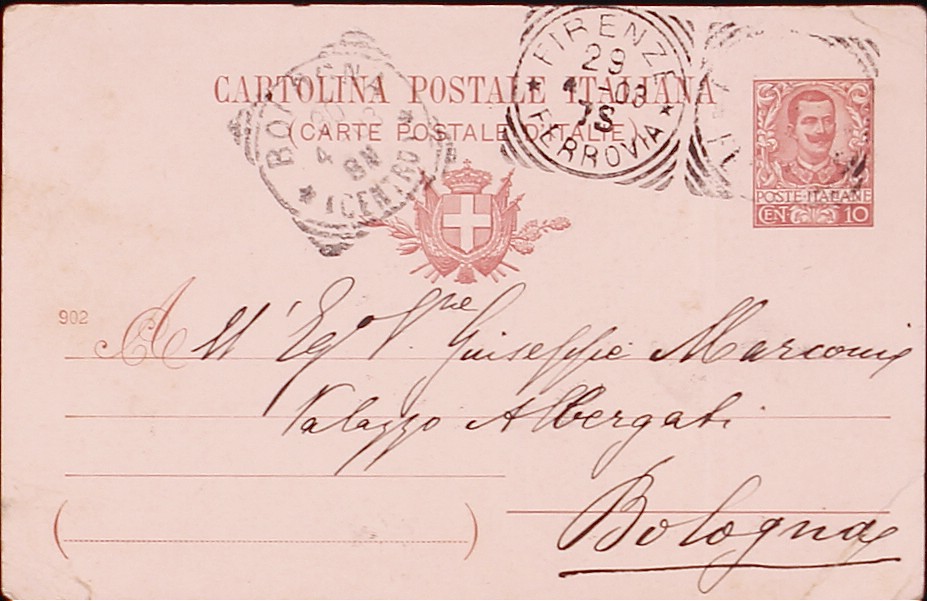 CARTOLINA POSTALE ITALIANA
(CARTE POSTALE D'ITALIE)
FIRENZE
29
4 -03
7S
FERROVIA
BOLOGNA
4
8N
(CENTRO)
POSTE ITALIANE
CEN. 10
902
All' Eg.o S.re Giuseppe Marconi
Palazzo Albergati
Bologna